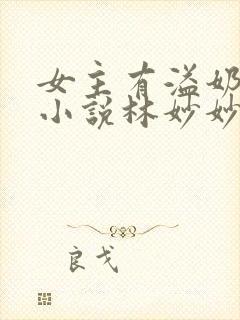 女主有溢奶
小说林妙妙
良戈